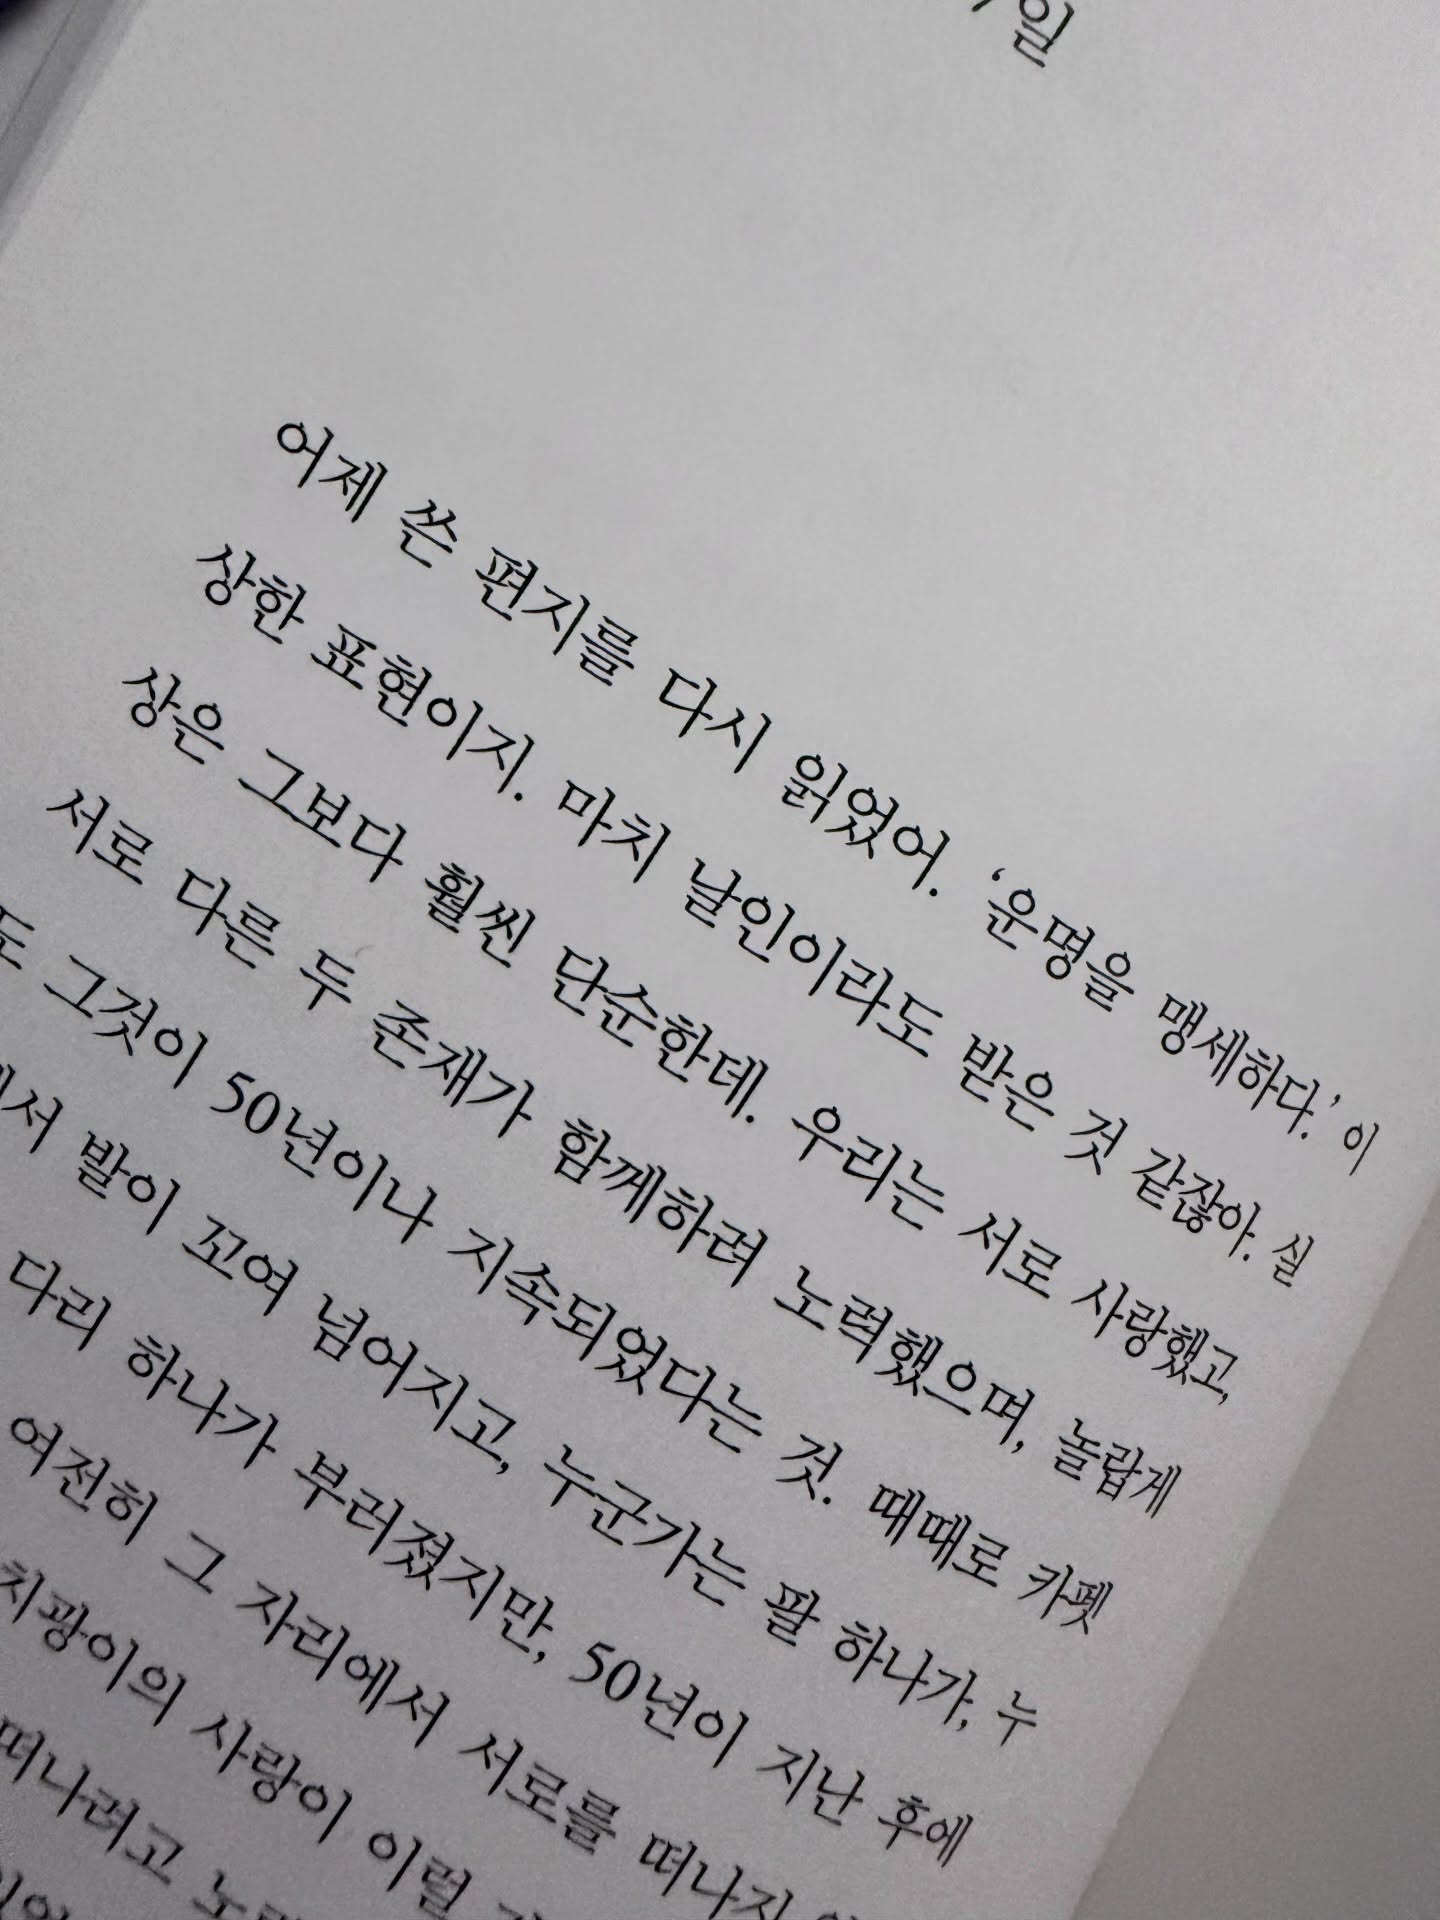 일
어제 쓴 편지를 다시 읽었어. ‘운명을 맹세하다.’ 이
상한 표현이지. 마치 날인이라도 받은 것 같잖아. 실
상은 그보다 훨씬 단순한데. 우리는 서로 사랑했고,
서로 다른 두 존재가 함께하려 노력했으며, 놀랍게
도 그것이 50년이나 지속되었다는 것. 때때로 카펫
에서 발이 꼬여 넘어지고, 누군가는 팔 하나가, 누
다리 하나가 부러졌지만, 50년이 지난 후에
여전히 그 자리에서 서로를 떠나지
치광이의 사랑이 이럴
떠나려고